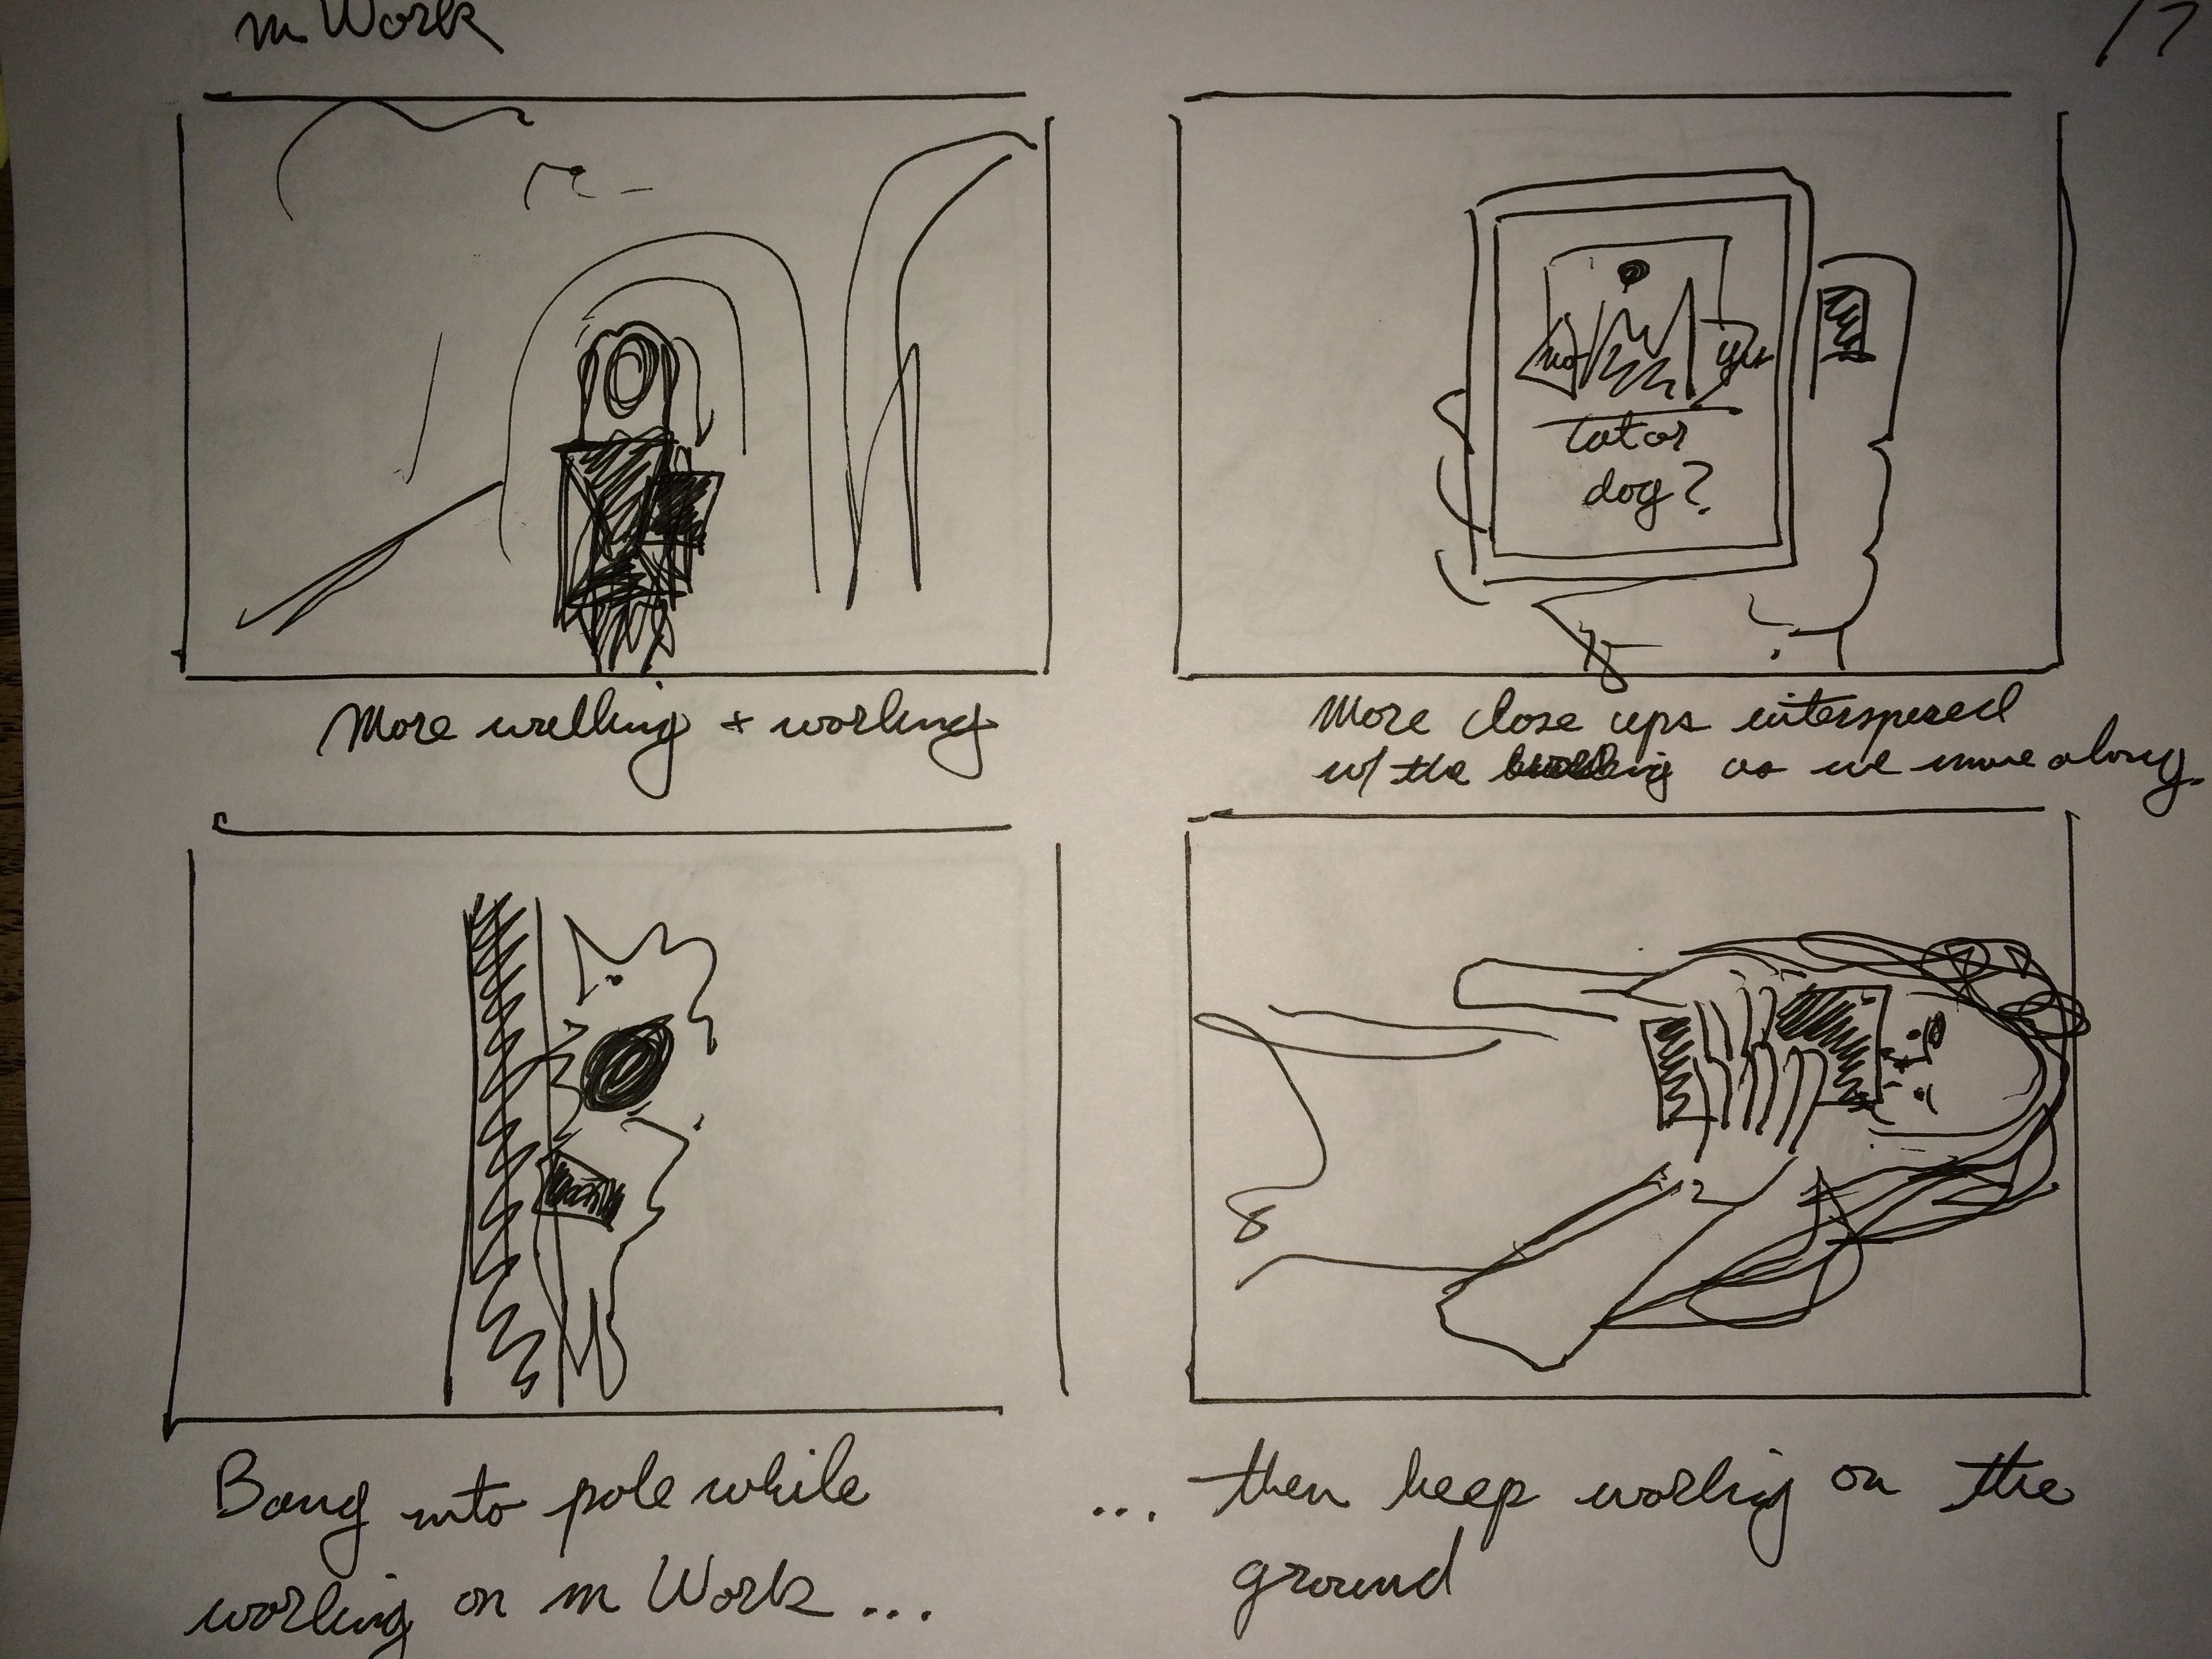 m Work
17
no
yes
Cat or
dog?
More walking + working
More close ups interspersed
w/ the walking as we move along.
Bang into pole while
working on m Work...
... then keep working on the
ground